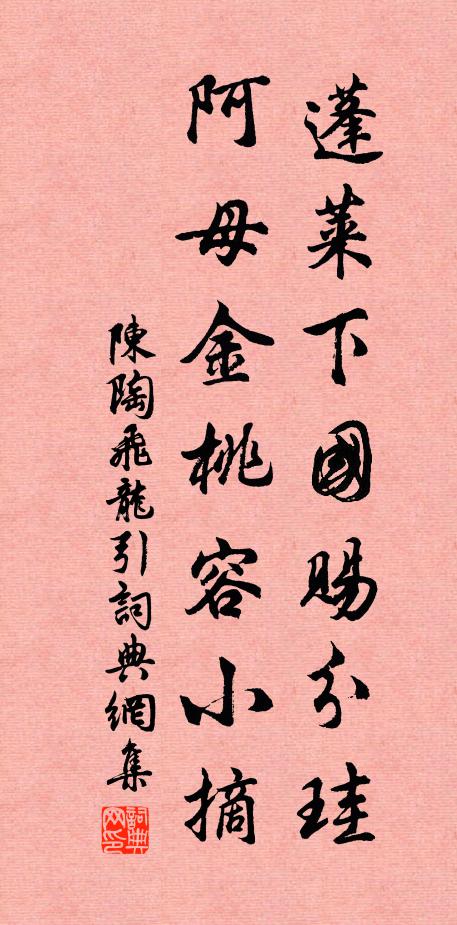 蓬萊下國賜分珪
阿母金桃容小摘
陳陶飛龍引詞典網集
詞典网印